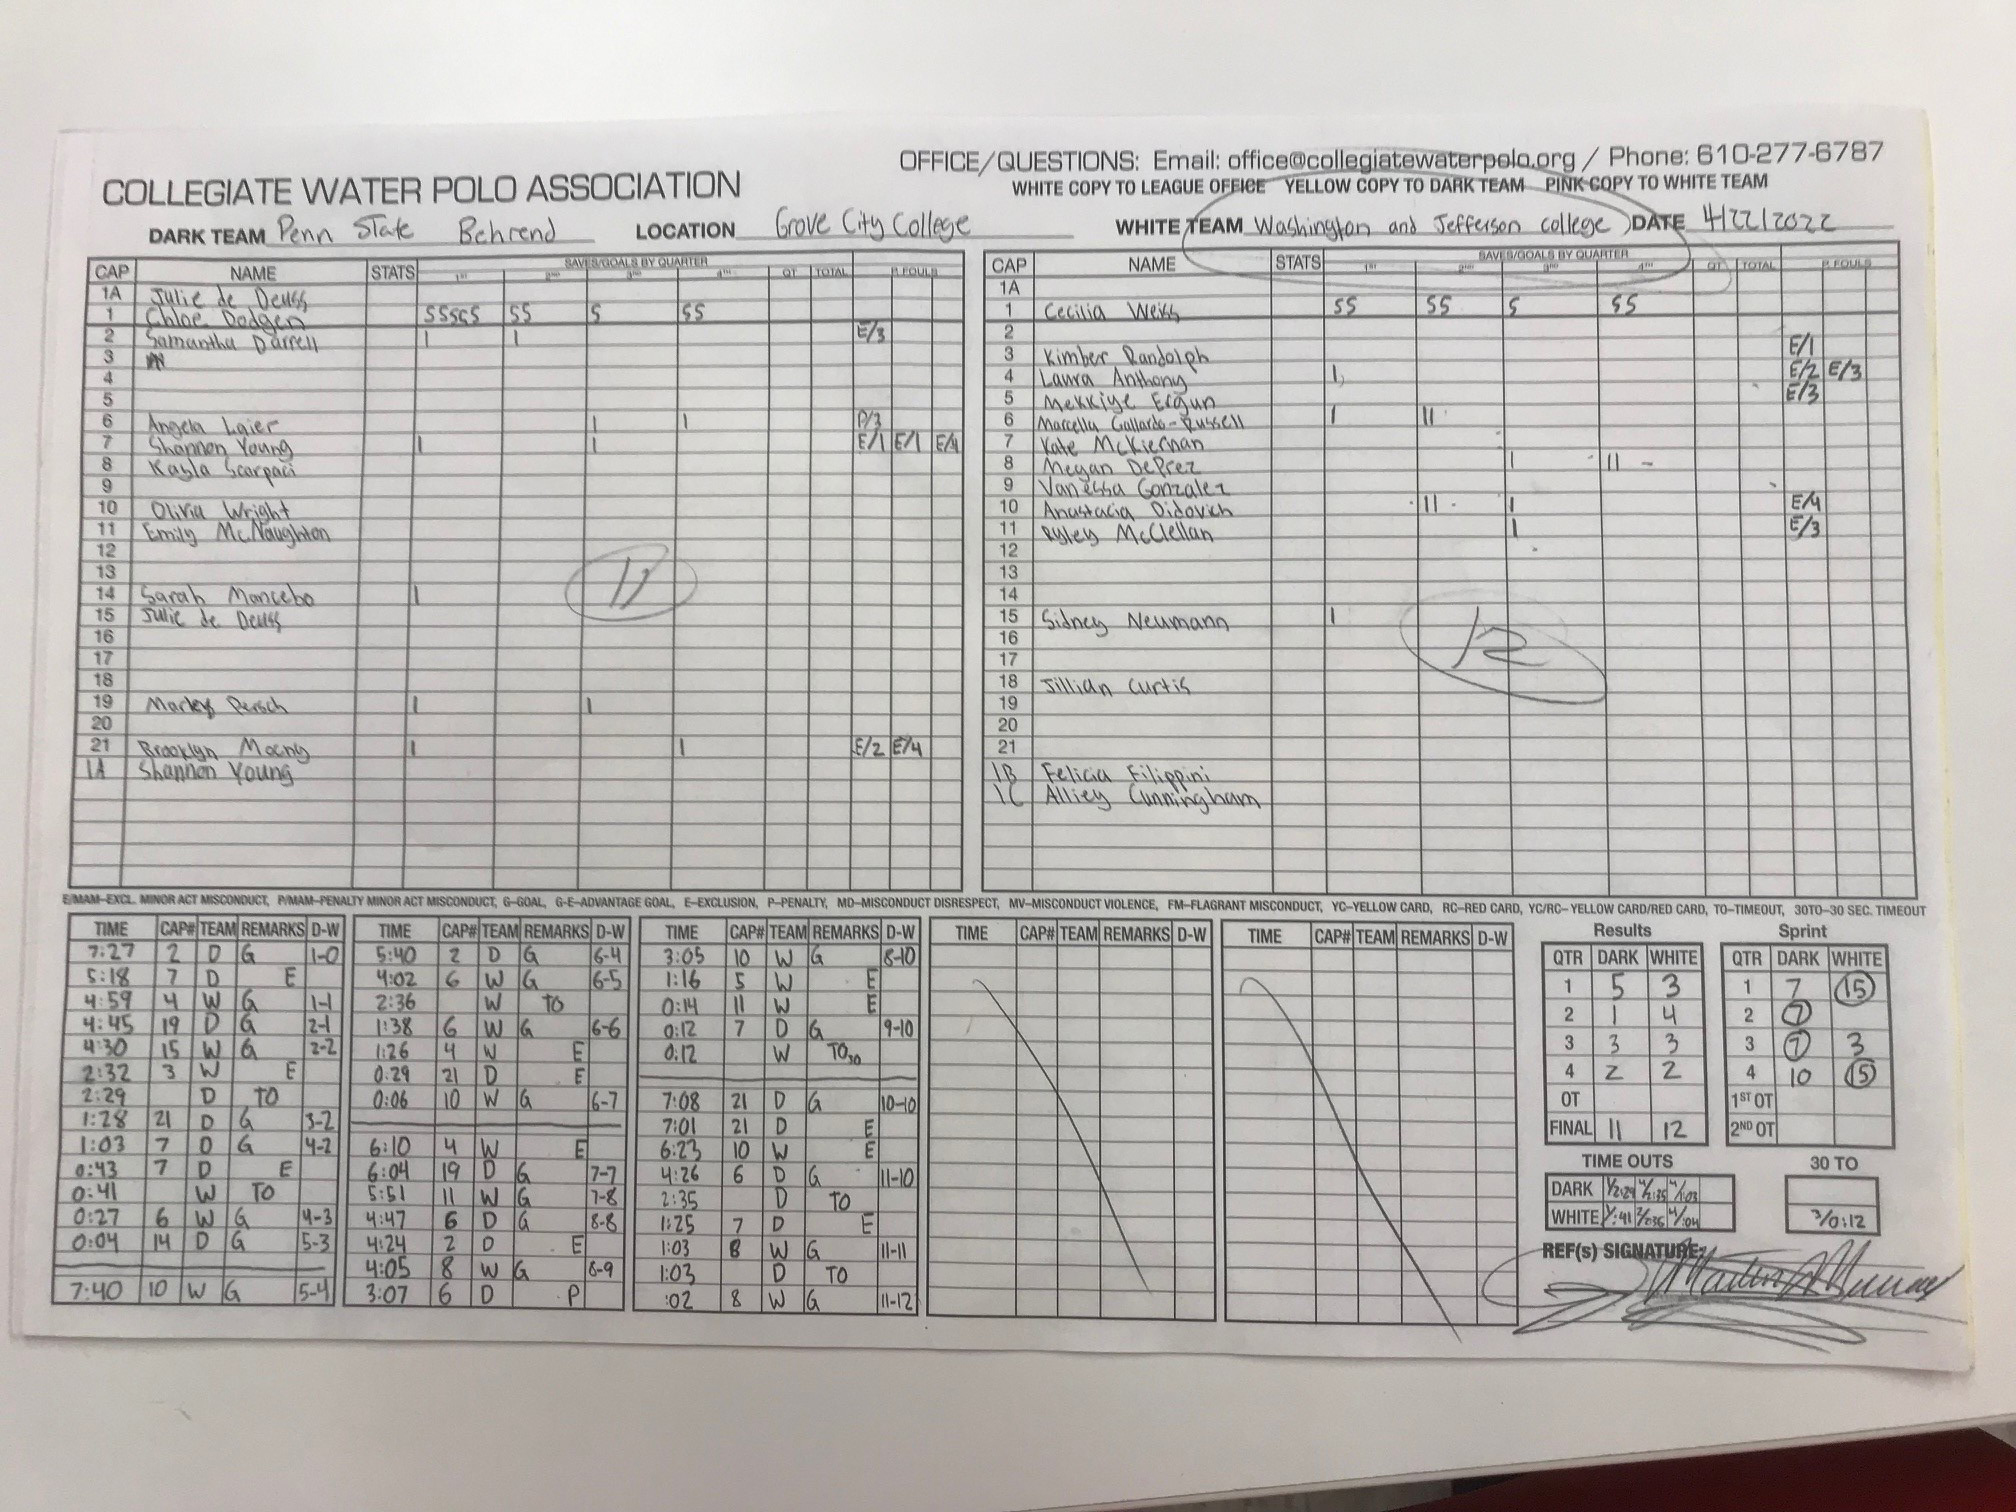 OFFICE/QUESTIONS: Email: office@collegiatewaterpolo.org / Phone: 610-277-6787
COLLEGIATE WATER POLO ASSOCIATION
WHITE COPY TO LEAGUE OFFICE YELLOW COPY TO DARK TEAM PINK COPY TO WHITE TEAM
DARK TEAM Penn State Behrend LOCATION Grove City College WHITE TEAM Washington and Jefferson college DATE 4/22/2022
CAP NAME STATS SAVES/GOALS BY QUARTER 1ST 2ND 3RD 4TH OT TOTAL P. FOULS
1A Julie de Deuss
1 Chloe Dodgen SSSGS SS S SS
2 Samantha Darrell I I E/3
3
4
5
6 Angela Laier I I P/3
7 Shannon Young I I E/1 E/1 E/4
8 Kayla Scarpaci
9
10 Olivia Wright
11 Emily McNaughton
12
13
14 Sarah Mancebo I
15 Julie de Deuss
16
17
18
19 Marley Persch I I
20
21 Brooklyn Mocny I I E/2 E/4
1A Shannon Young
11
CAP NAME STATS SAVES/GOALS BY QUARTER 1ST 2ND 3RD 4TH OT TOTAL P. FOULS
1A
1 Cecilia Weiss SS SS S SS
2
3 Kimber Randolph E/1
4 Laura Anthony I E/2 E/3
5 Mekkiye Ergun E/3
6 Marcella Gallardo-Russell I II
7 Kate McKiernan
8 Megan DePrez I II
9 Vanessa Gonzalez
10 Anastacia Didovich II I E/4
11 Ryley McClellan I E/3
12
13
14
15 Sidney Neumann I
16
17
18 Jillian Curtis
19
20
21
1B Felicia Filippini
1C Alliey Cunningham
12
E/MAM–EXCL. MINOR ACT MISCONDUCT, P/MAM–PENALTY MINOR ACT MISCONDUCT, G–GOAL, G-E–ADVANTAGE GOAL, E–EXCLUSION, P–PENALTY, MD–MISCONDUCT DISRESPECT, MV–MISCONDUCT VIOLENCE, FM–FLAGRANT MISCONDUCT, YC–YELLOW CARD, RC–RED CARD, YC/RC–YELLOW CARD/RED CARD, TO–TIMEOUT, 30TO–30 SEC. TIMEOUT
TIME CAP# TEAM REMARKS D-W
7:27 2 D G 1-0
5:18 7 D E
4:59 4 W G 1-1
4:45 19 D G 2-1
4:30 15 W G 2-2
2:32 3 W E
2:29 D TO
1:28 21 D G 3-2
1:03 7 D G 4-2
0:43 7 D E
0:41 W TO
0:27 6 W G 4-3
0:04 14 D G 5-3
7:40 10 W G 5-4
TIME CAP# TEAM REMARKS D-W
5:40 2 D G 6-4
4:02 6 W G 6-5
2:36 W TO
1:38 6 W G 6-6
1:26 4 W E
0:29 21 D E
0:06 10 W G 6-7
6:10 4 W E
6:04 19 D G 7-7
5:51 11 W G 7-8
4:47 6 D G 8-8
4:24 2 D E
4:05 8 W G 8-9
3:07 6 D P
TIME CAP# TEAM REMARKS D-W
3:05 10 W G 8-10
1:16 5 W E
0:14 11 W E
0:12 7 D G 9-10
0:12 W TO30
7:08 21 D G 10-10
7:01 21 D E
6:23 10 W E
4:26 6 D G 11-10
2:35 D TO
1:25 7 D E
1:03 8 W G 11-11
1:03 D TO
:02 8 W G 11-12
TIME CAP# TEAM REMARKS D-W
TIME CAP# TEAM REMARKS D-W
Results
QTR DARK WHITE
1 5 3
2 1 4
3 3 3
4 2 2
OT
FINAL 11 12
Sprint
QTR DARK WHITE
1 7 15
2 7
3 7 3
4 10 15
1ST OT
2ND OT
TIME OUTS
DARK 1/2:29 4/2:35 4/1:03
WHITE 1/:41 2/2:36 4/:04
30 TO
3/0:12
REF(s) SIGNATURE: